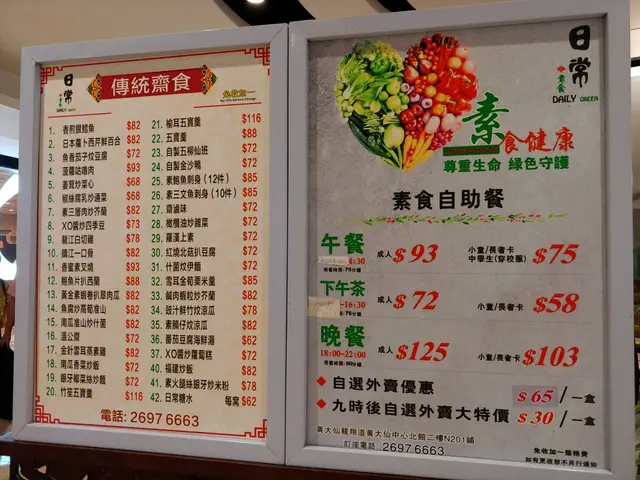 日常
素食
DAILY GREEN
傳統齋食
免收加一
No 10% Service Charge
1. 香煎銀鱈魚 $82
2. 日本蘿卜西芹鮮百合 $82
3. 魚香茄子炆豆腐 $72
4. 菠蘿咕嚕肉 $93
5. 姜茸炒菜心 $68
6. 椒絲腐乳炒通菜 $68
7. 素三層肉炒芥蘭 $82
8. XO醬炒四季豆 $73
9. 龍江白切雞 $78
10. 鎮江一口骨 $82
11. 香蜜素叉燒 $93
12. 鮑魚片扒西蘭 $88
13. 黃金素蝦卷扒翠肉瓜 $82
14. 魚腐炒萵筍准山 $82
15. 南瓜准山炒什菌 $82
16. 溫公齋 $72
17. 金針雲耳蒸素雞 $72
18. 南瓜香菜炒飯 $72
19. 銀牙椰菜絲炒麵 $72
20. 竹笙五寶羹 $116
21. 榆耳五寶羹 $116
22. 五寶羹 $88
23. 自製五柳仙班 $72
24. 自製金沙鴨 $72
25. 素鮑魚刺身（12件） $85
26. 素三文魚刺身（10件） $85
27. 齋滷味 $72
28. 橄欖油炒雜菜 $72
29. 羅漢上素 $72
30. 紅燒北菇扒豆腐 $72
31. 什菌炆伊麵 $72
32. 雪耳金筍粟米羹 $88
33. 鹹肉蝦粒炒芥蘭 $82
34. 豉汁鮮竹炆涼瓜 $78
35. 素腩仔炆涼瓜 $82
36. 番茄豆腐海鮮湯 $62
37. XO醬炒蘿蔔糕 $72
40. 福建炒飯 $82
41. 素火腿絲銀牙炒米粉 $78
42. 日常糖水 每窩 $62
電話: 2697 6663
日常
素食
DAILY GREEN
素食健康
尊重生命 綠色守護
素食自助餐
午餐 成人 $93 小童/長者卡 中學生(穿校服) $75
下午茶 成人 $72 小童/長者卡 $58
晚餐 成人 $125 小童/長者卡 $103
18:00-22:00
自選外賣優惠 $65 / 一盒
九時後自選外賣大特價 $30 / 一盒
黃大仙龍翔道黃大仙中心北館二樓N201鋪
訂座電話 2697 6663
免收加一服務費
如有更改恕不另行通知